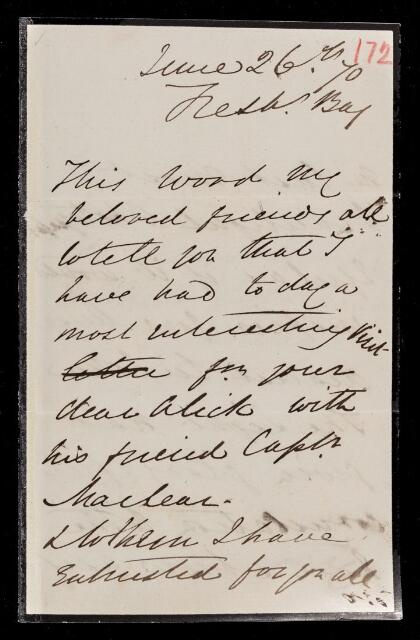 June 26th. 70
172
Freshr. Bay
This word my
beloved friends all
to tell you that I
have had to day a
most interesting visit
letter fm your
dear Alick with
his friend Captn
Maclear.
& to them I have
entrusted for you all